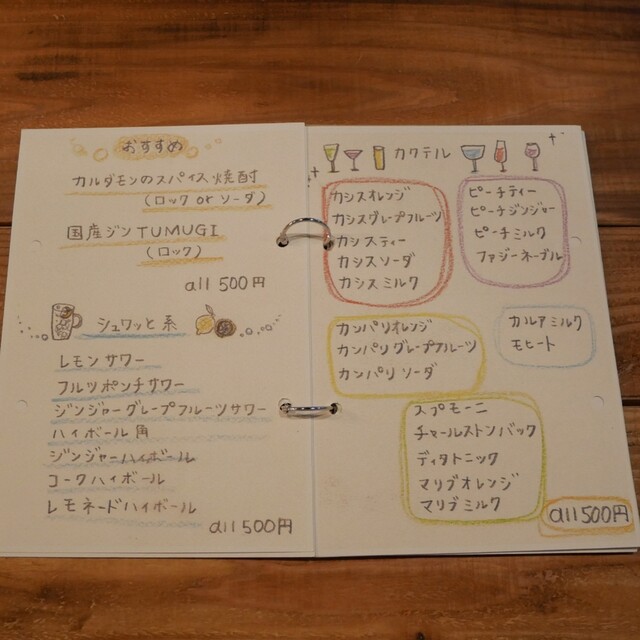 おすすめ
カルダモンのスパイス焼酎
(ロック or ソーダ)
国産ジン TUMUGI
(ロック)
all 500円
シュワッと系
レモンサワー
フルーツポンチサワー
ジンジャーグレープフルーツサワー
ハイボール角
ジンジャーハイボール
コークハイボール
レモネードハイボール
all 500円
カクテル
カシスオレンジ
カシスグレープフルーツ
カシスティー
カシスソーダ
カシスミルク
ピーチティー
ピーチジンジャー
ピーチミルク
ファジーネーブル
カンパリオレンジ
カンパリグレープフルーツ
カンパリソーダ
カルアミルク
モヒート
スプモーニ
チャールストンバック
ディタトニック
マリブオレンジ
マリブミルク
all 500円